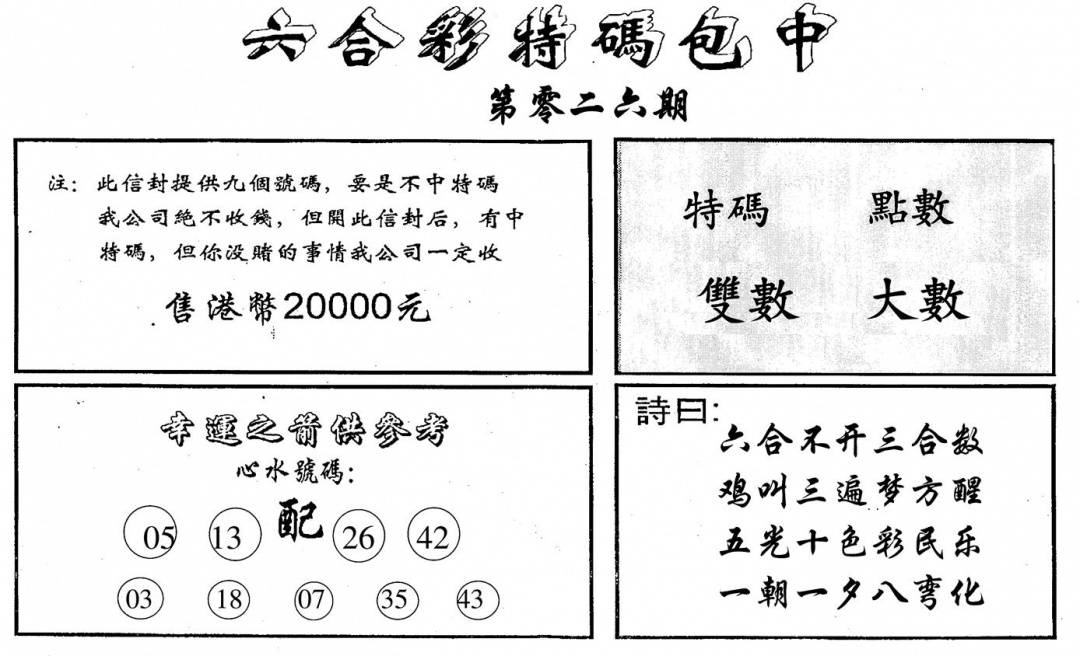 六合彩特碼包中
第零二六期
注：此信封提供九個號碼，要是不中特碼
我公司絕不收錢，但開此信封后，有中
特碼，但你没賭的事情我公司一定收
售港幣20000元
特碼 點數
雙數 大數
幸運之箭供參考
心水號碼：
05 13 配 26 42
03 18 07 35 43
詩曰：
六合不开三合数
鸡叫三遍梦方醒
五光十色彩民乐
一朝一夕八弯化